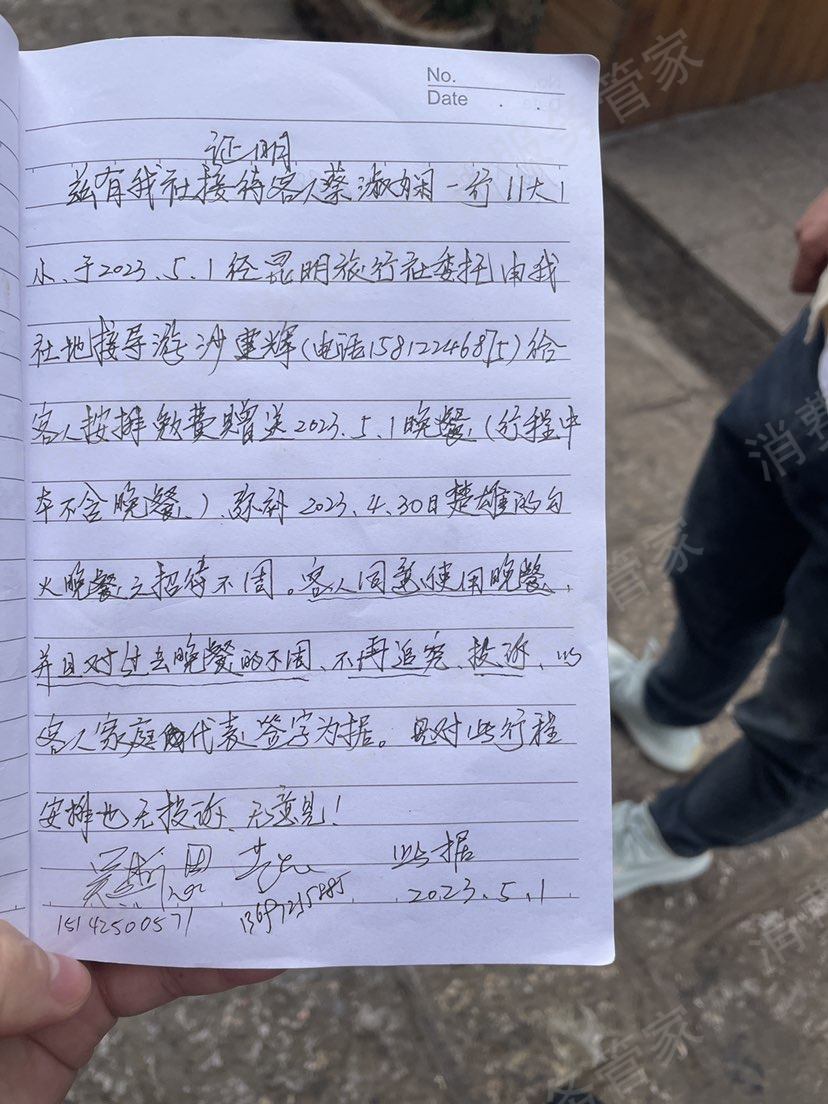 No.
Date . .
证明
兹有我社接待客人蔡淑娴一行11大1
小、于2023.5.1经昆明旅行社委托由我
社地接导游沙 辉(电话15812246875)给
客人按排免费赠送2023.5.1晚餐(行程中
本不含晚餐、)弥补2023.4.30日楚雄的勾
火晚餐之招待不周。客人同意使用晚餐、
并且对过去晚餐的不周、不再追究、投诉、以
客人家庭 代表签字为据。且对此行程
安排也无投诉、无意见!
以此据
2023.5.1
15142500571
消费
服务管家
管家
消费
消费
务管家